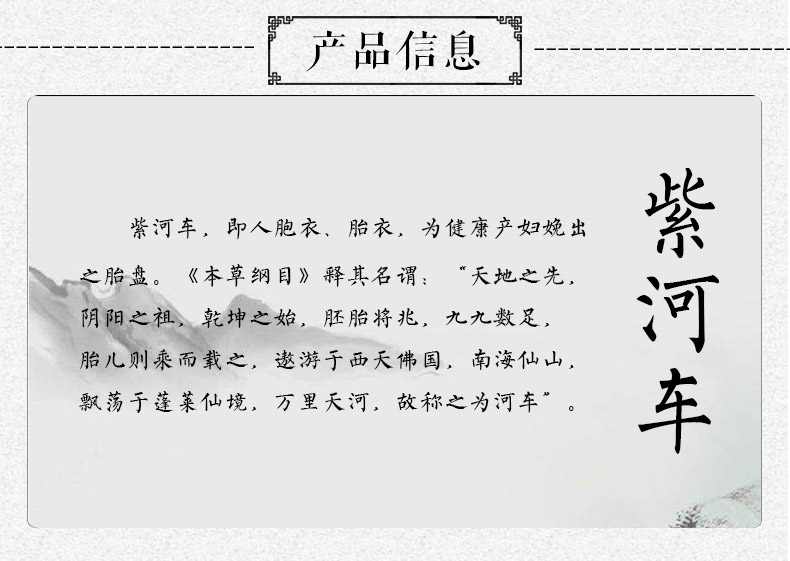 产品信息
紫河车，即人胞衣、胎衣，为健康产妇娩出
之胎盘。《本草纲目》释其名谓：“天地之先，
阴阳之祖，乾坤之始，胚胎将兆，九九数足，
胎儿则乘而载之，遨游于西天佛国，南海仙山，
飘荡于蓬莱仙境，万里天河，故称之为河车”。
紫河车